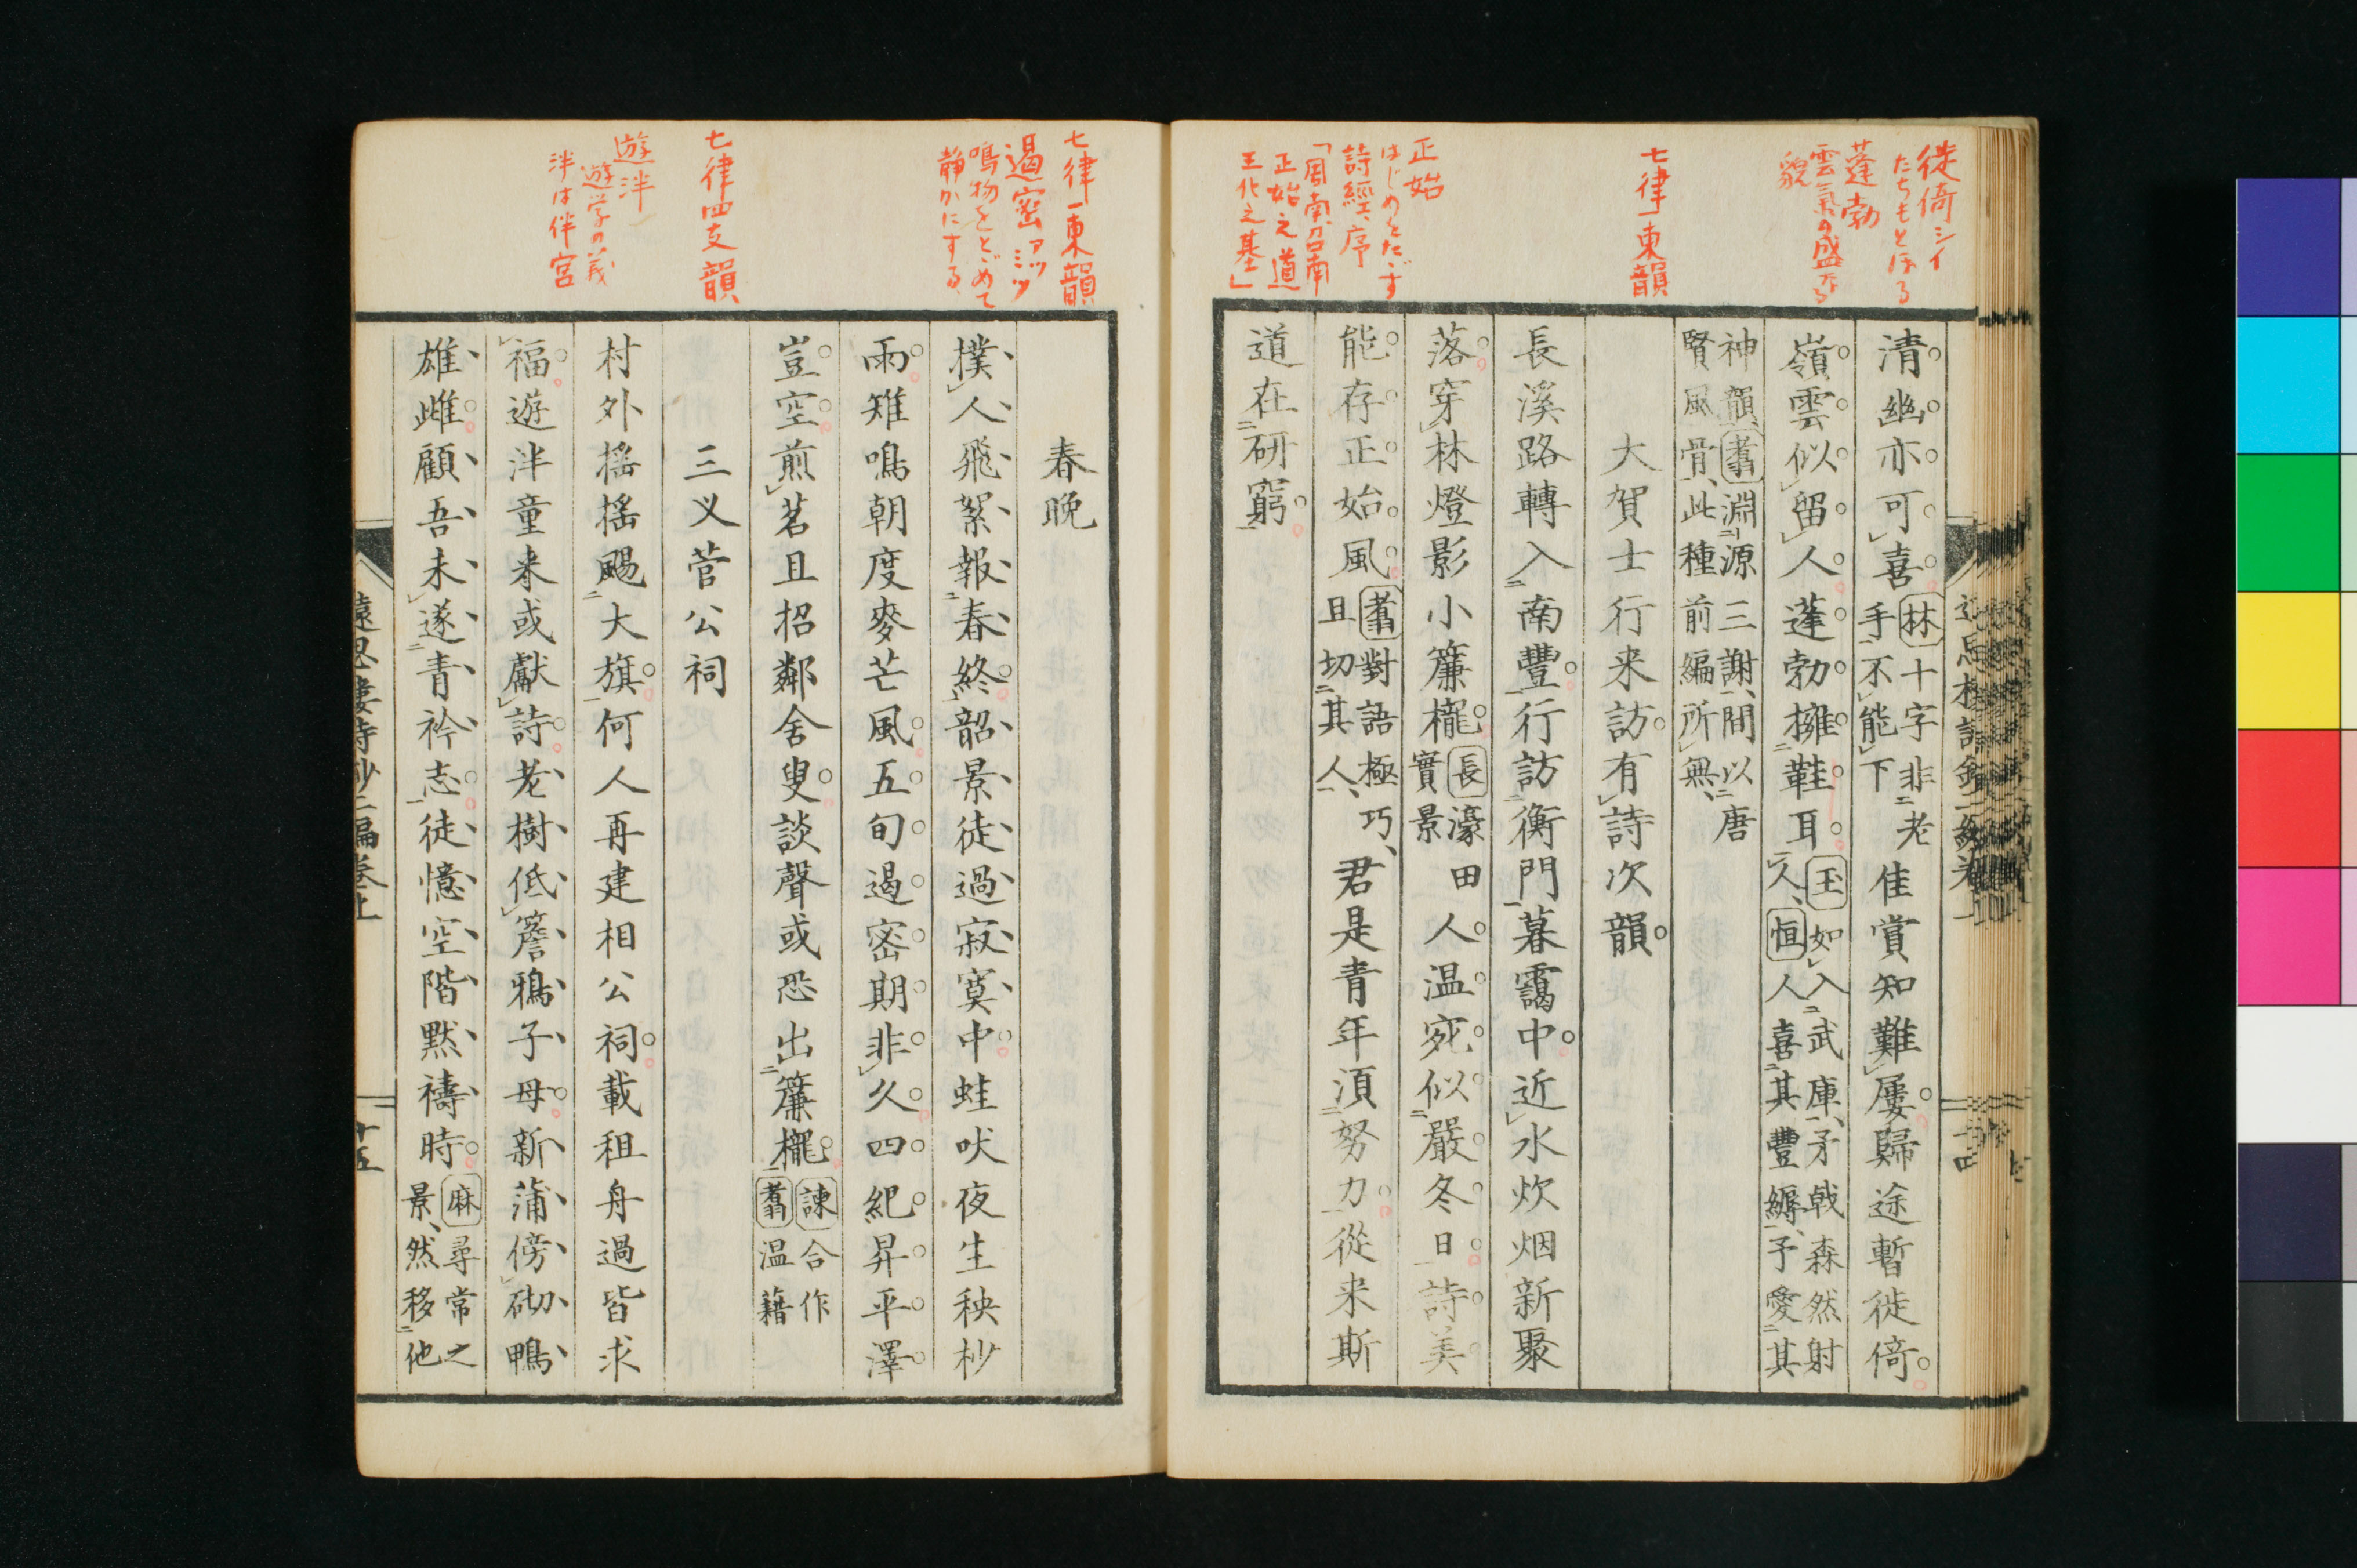 徙倚シイ
たちもとほる
蓬勃
雲氣の盛なる
貌
七律一東韻
正始
はじめをたゞす
詩經、序
「周南召南
正始之道
王化之基」
清幽亦可喜
林十字非老
手不能下
佳賞知難屢歸途暫徙倚
嶺雲似留人蓬勃擁鞋耳
玉如入武庫、矛戟森然射
人、恒人喜其豐縟、予愛其
神韻、蓊淵源三謝、間以唐
賢風骨、此種前編所無、
大賀士行来訪有詩次韻
長溪路轉入南豐行訪衡門暮靄中近水炊烟新聚
落穿林燈影小簾櫳
長濠田
實景
人温宛似嚴冬日詩美
能存正始風
蓊對語極巧、
且切其人、
君是青年須努力從来斯
道在研窮
七律一東韻
遏密アツミツ
鳴物をとゞめて
静かにする、
七律四支韻
遊泮
遊学の義
泮は伴宮
春晩
撲人飛絮報春終韶景徒過寂寞中蛙吠夜生秧杪
雨雉鳴朝度麥芒風五旬遏密期非久四紀昇平澤
豈空煎茗且招鄰舍叟談聲或恐出簾櫳
諫合作
蓊温藉
三义菅公祠
村外搖搖颺大旗何人再建相公祠載租舟過皆求
福遊泮童来或獻詩老樹低簷鴉子母新蒲傍砌鴨
雄雌顧吾未遂青衿志徒憶空階默禱時
麻尋常之
景、然移他
遠思樓詩鈔二編卷上
十五